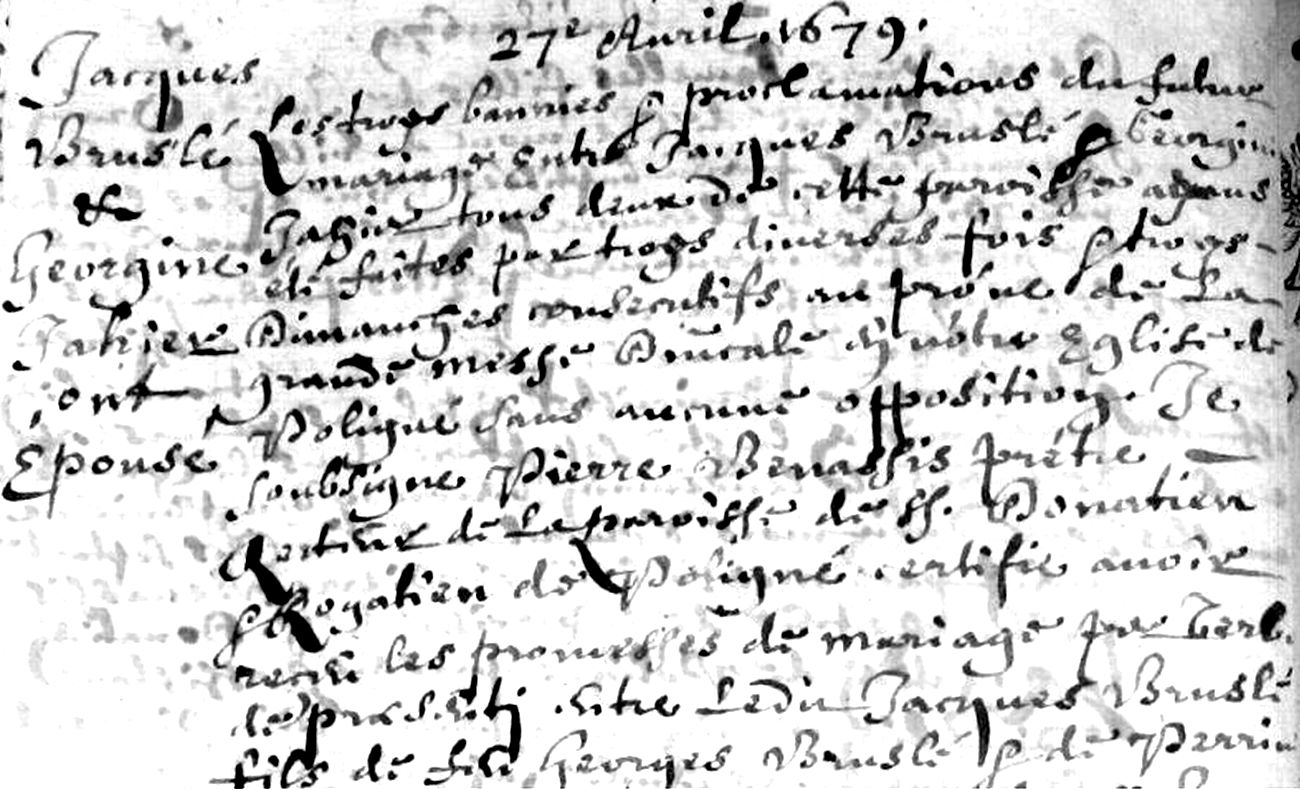 27e Avril 1679.
Jacques
Bruslé
&
Georgine
Jahier
ont
Epousé
Les troys bannies & proclamations du futur
mariage entre Jacques Bruslé & Georgine
Jahier tous deux de cette paroisse ayans
eté faites par troys diverses fois & troys
Dimanches consecutifs au prône de La
grande messe Dñicale en nôtre Eglise de
Poligné sans aucune opposition. Je
soubsigne Pierre Benassis prétre
Recteur de La paroisse de SS. Donatien
& Rogatien de Poligné certifie avoir
receu les promesses de mariage par verb.
de præsenti entre Ledit Jacques Bruslé
fils de feu Georges Bruslé & de Perrin